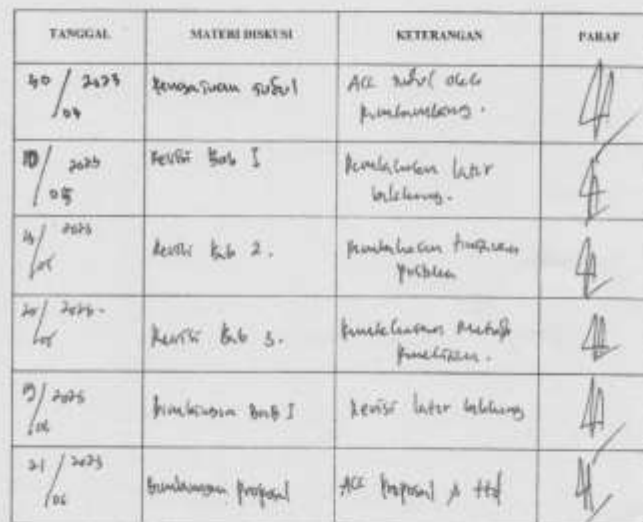 TANGGAL MATERI DISKUSI KETERANGAN PARAF
30/04 2023 Pengajuan Judul ACC Judul oleh
pembimbing.
10/05 2023 Revisi Bab I Pembahasan latar
belakang.
/05 2023 Revisi Bab 2. Pembahasan tinjauan
pustaka
/05 2023 Revisi Bab 3. Pembahasan Metode
Penelitian.
/06 2023 Bimbingan Bab I Revisi latar belakang
21/06 2023 Bimbingan proposal ACC Proposal & ttd